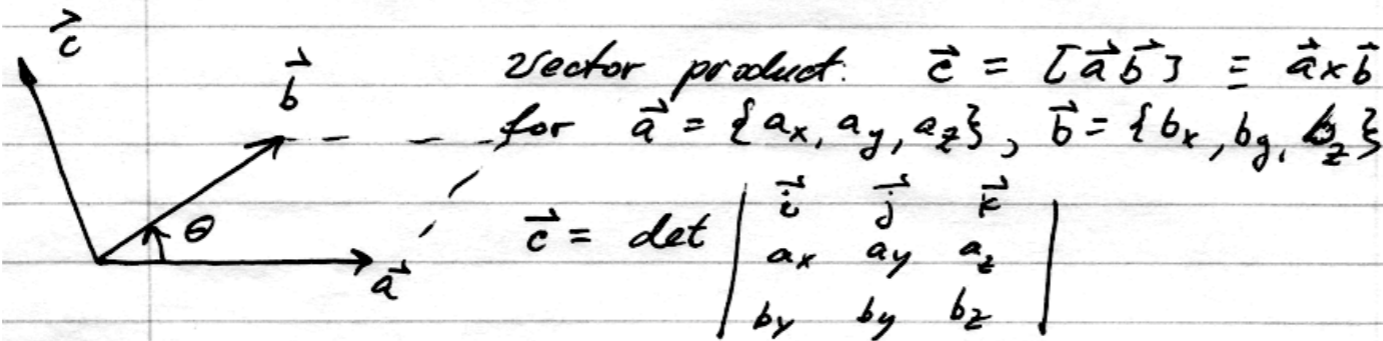 c⃗
b⃗
θ
a⃗
vector product: c⃗ = [a⃗ b⃗] ≡ a⃗×b⃗
for a⃗ = {ax, ay, az}, b⃗ = {bx, by, bz}
c⃗ = det | i⃗ j⃗ k⃗ |
ax ay az
by by bz